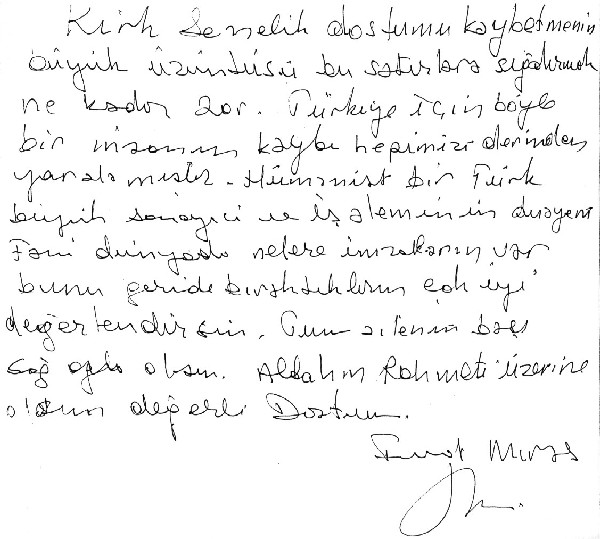 Kırk Senelik dostumu kaybetmenin
büyük üzüntüsü bu satırlara sığdırmak
ne kadar zor. Türkiye için böyle
bir insanın kaybı hepimizi derinden
yaralamıştır. Hümanist bir Türk
büyük sanayici ve iş aleminin duayeni
Fani dünyada nelere imzaların var
bunu geride bıraktıkların çok iyi
değerlendirsin. Tüm ailenin başı
sağ olsun. Allahın Rahmeti üzerine
olsun değerli Dostum.